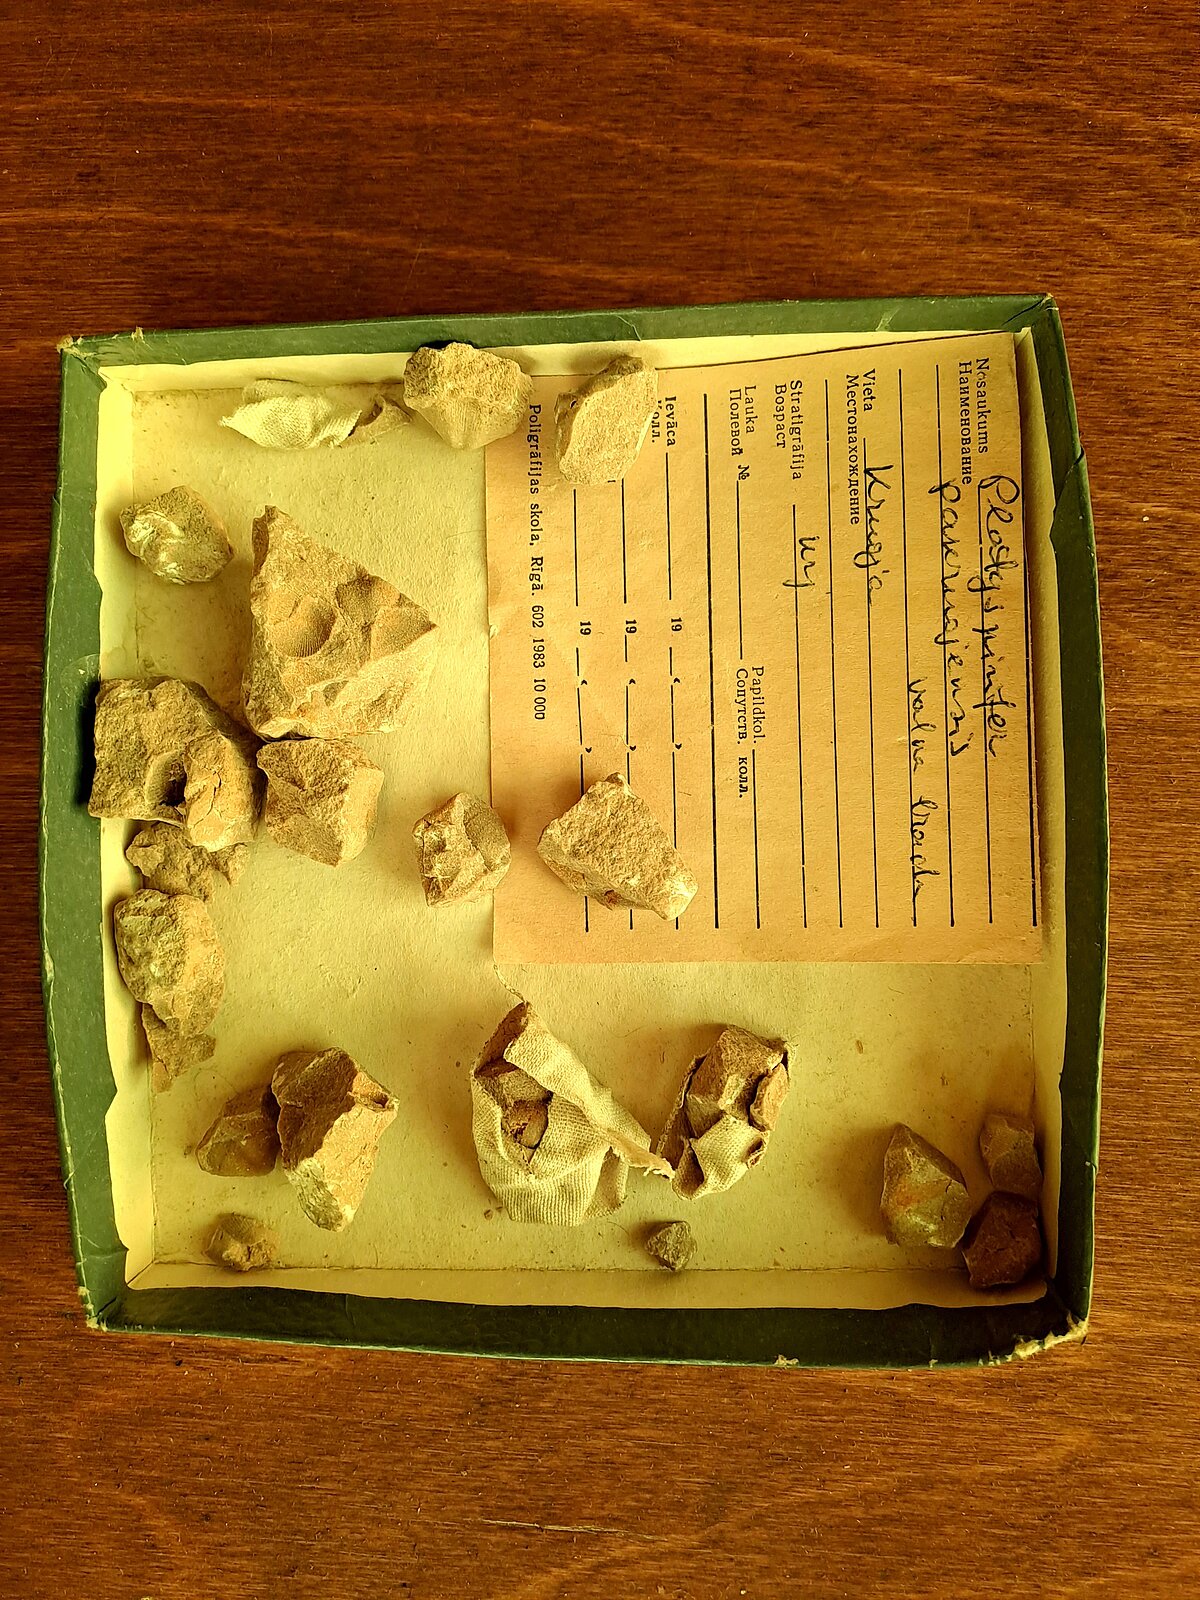 Nosaukums Platyspirifer
Наименование pakruojensis
valva brach
Vieta Kruoja
Местонахождение
Stratigrāfija
Возраст
Lauka
Полевой №
Papildkol.
Сопутств. колл.
Ievāca 19 “ ”
Колл. 19 “ ”
19 “ ”
Poligrāfijas skola, Rīgā. 602 1983 10 000